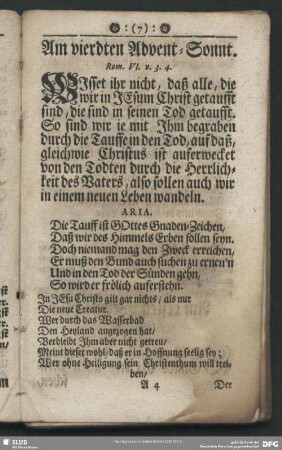 : (7) :
Am vierdten Advent-Sonnt.
Rom. VI. v. 3. 4.
WIsset ihr nicht, daß alle, die
wir in JEsum Christ getaufft
sind, die sind in seinen Tod getaufft.
So sind wir ie mit Jhm begraben
durch die Tauffe in den Tod, auf daß,
gleichwie Christus ist auferwecket
von den Todten durch die Herrlich-
keit des Vaters, also sollen auch wir
in einem neuen Leben wandeln.
ARIA.
Die Tauff ist GOttes Gnaden-Zeichen,
Daß wir des Himmels Erben sollen seyn.
Doch niemand mag den Zweck erreichen,
Er muß den Bund auch suchen zu erneu'n
Und in den Tod der Sünden gehn,
So wird er frölich auferstehn.
Jn JEsu Christo gilt gar nichts/ als nur
Die neue Creatur.
Wer durch das Wasserbad
Den Heyland angezogen hat/
Verbleibt Jhm aber nicht getreu/
Meint dieser wohl/ daß er in Hoffnung seelig sey;
Wer ohne Heiligung sein Christenthum will trei-
ben/
A 4
Der
SLUB
DFG